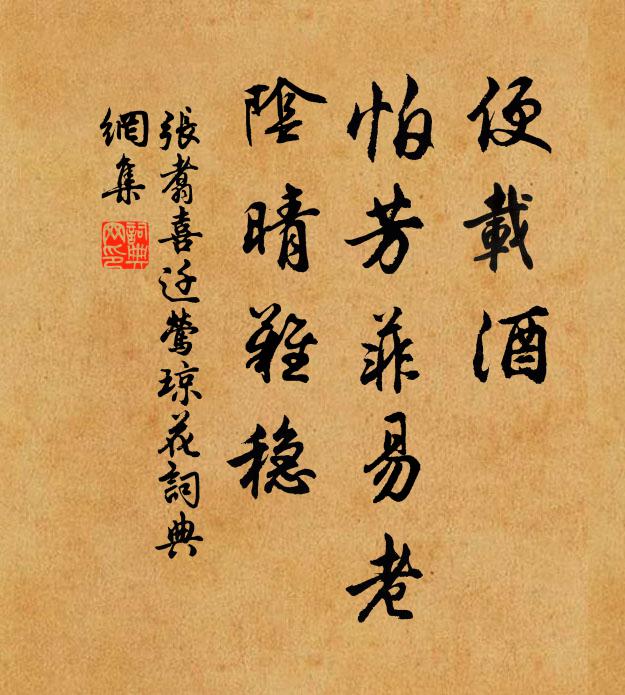 便載酒
怕芳菲易老
陰晴難穩
張翥喜迁鶯瓊花詞典
網集
詞典
网印